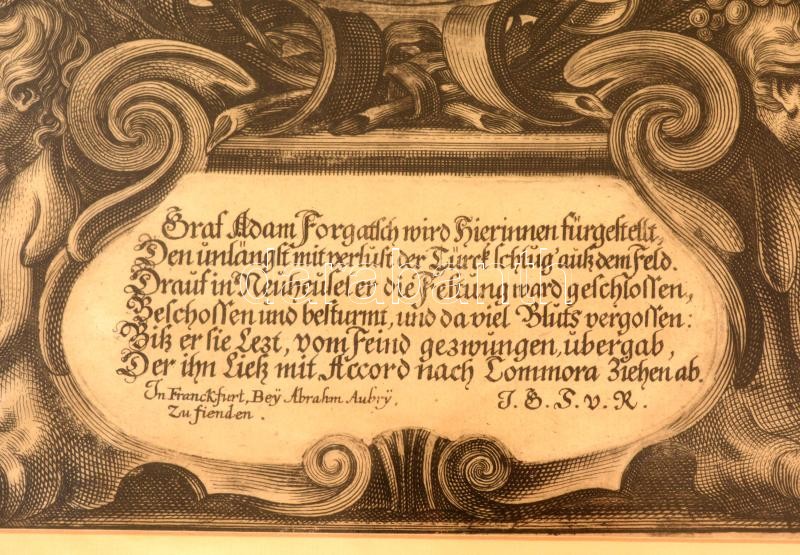 Graf Adam Forgatsch wird Hierinnen fürgestellt,
Den unlängst mit verlust der Türck schlug auß dem Feld.
Drauf in Neuheusel er die Festung ward geschlossen,
Beschossen und besturmt, und da viel Bluts vergossen:
Biß er sie Lezt, vom Feind gezwungen, übergab,
Der ihn Ließ mit Accord nach Commora Ziehen ab.
In Franckfurt, Beÿ Abrahm Aubrÿ,
Zu fienden.
J. G. S. v. R.
darabanth